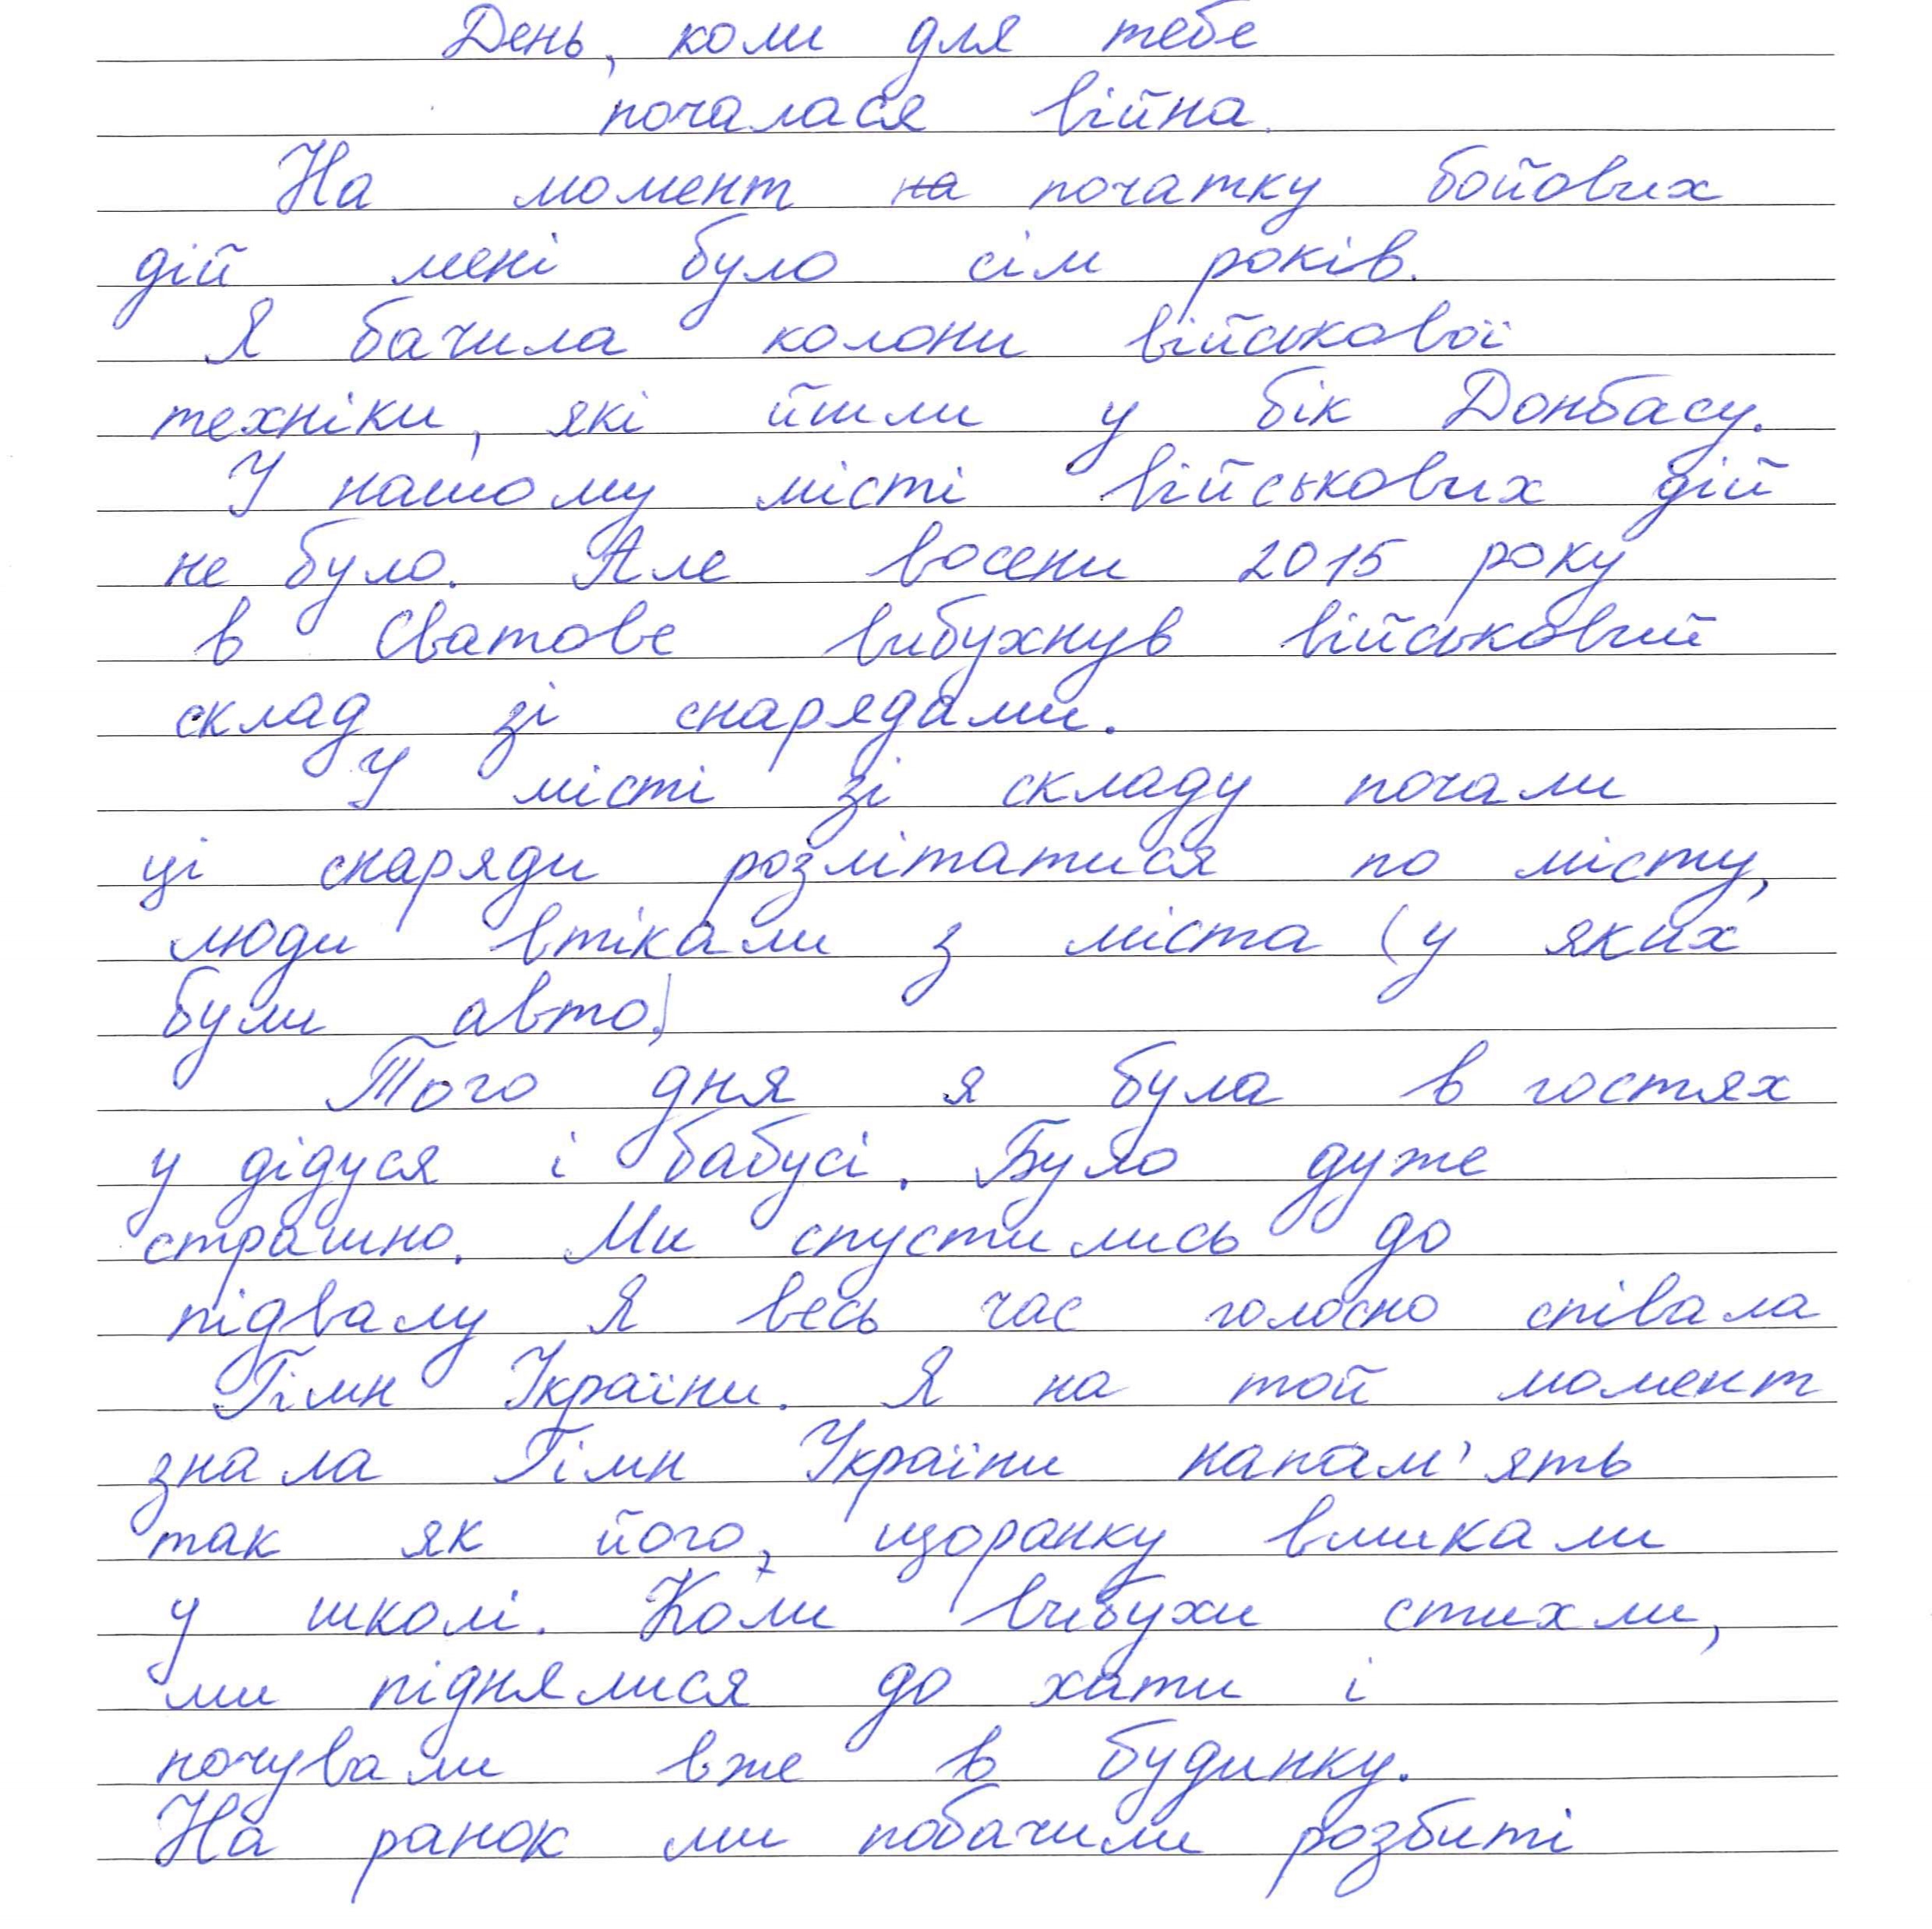 День, коли для тебе
почалася війна.
На момент на початку бойових
дій мені було сім років.
Я бачила колони військової
техніки, які йшли у бік Донбасу.
У нашому місті військових дій
не було. Але восени 2015 року
в Сватове вибухнув військовий
склад зі снарядами.
У місті зі складу почали
ці снаряди розлітатися по місту,
люди втікали з міста (у яких
були авто)
Того дня я була в гостях
у дідуся і бабусі. Було дуже
страшно. Ми спустились до
підвалу Я весь час голосно співала
Гімн України. Я на той момент
знала Гімн України напам'ять
так як його, щоранку вмикали
у школі. Коли вибухи стихли,
ми піднялися до хати і
ночували вже в будинку.
На ранок ми побачили розбиті